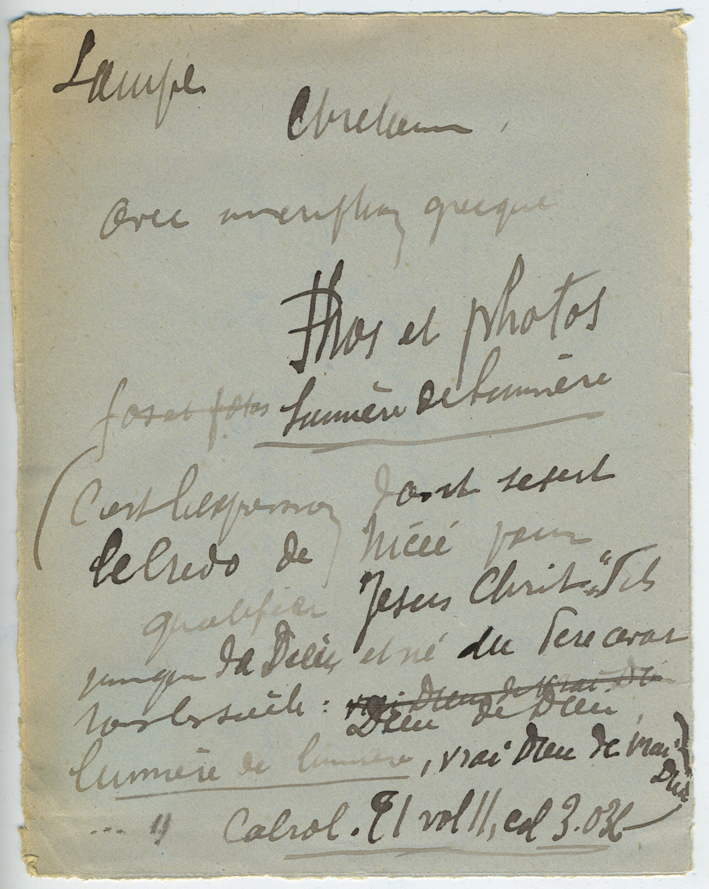 Lampe
Chretienne
avec inscription grecque
Phos et photos
fos et fotos lumière de lumière
(C'est l'expression dont se sert
le Credo de Nicée pour
qualifier Jesus Christ "Fils
unique de Dieu et né du Père avant
tous les siècles : vrai Dieu de vrai Di
Dieu de Dieu,
lumière de lumière, vrai Dieu de vrai
Dieu)
... " Cabrol. vol II, col 3.036